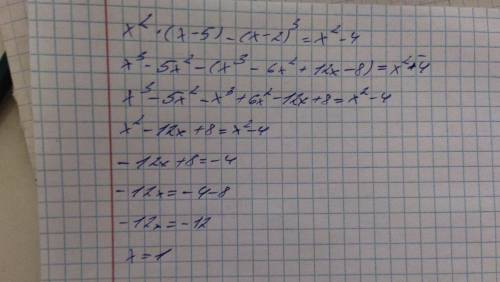 x² · (x-5) - (x-2)³ = x² - 4
x³ - 5x² - (x³ - 6x² + 12x - 8) = x² - 4
x³ - 5x² - x³ + 6x² - 12x + 8 = x² - 4
x² - 12x + 8 = x² - 4
- 12x + 8 = - 4
- 12x = - 4 - 8
- 12x = - 12
x = 1